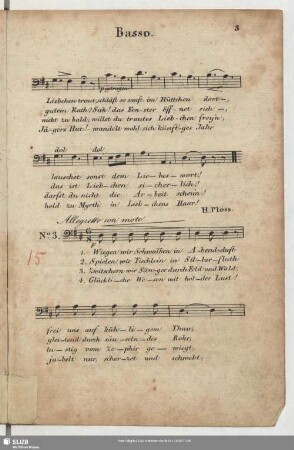 Basso.
3
Liebchen traut, schläfst so sanft im Hüttchen dort,
gutem Rath! Sieh! das Fen-ster öff-net sich,
nicht zu bald; willst du trautes Lieb-chen freyn,
Jä-gers Hut! wandelt wohl sich künft'ges Jahr
dol dol
lauschet sonst dem Lie-bes-wort!
das ist Lieb-chen si-cher-lich!
darfst du nicht die Ar-beit scheun!
hold zu Myrth in Lieb-chens Haar!
H. Ploss.
Allegretto con moto.
No. 3.
p
15
1. Wiegen wir Schwalben in A-bendsduft
2. Spielen wir Fischlein in Sil-ber-fluth
3. Zwitschern wir Sänger durch Feld und Wald;
4. Glückli-che We-sen mit hol-der Lust!
frei uns auf küh-li-gem Thau;
glei-tend durch säu-seln-des Rohr;
lu-stig vom Ze-phir ge-wiegt;
ju-belt nur, scher-zet und schwebt;
SLUB